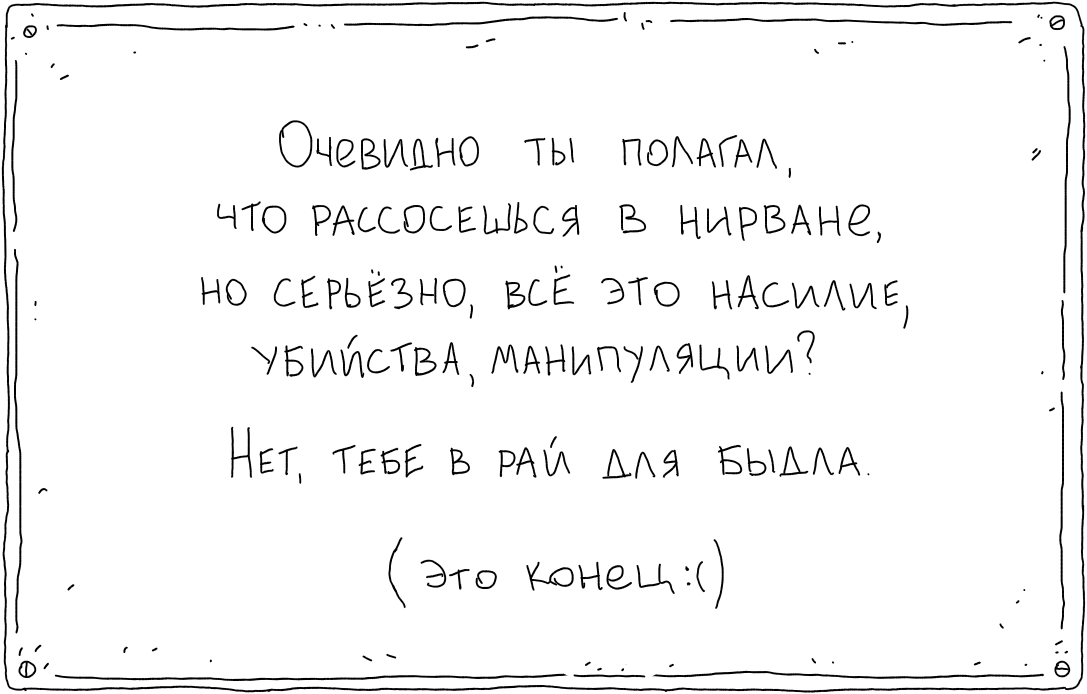 Очевидно ты полагал,
что рассосешься в нирване,
но серьёзно, всё это насилие,
убийства, манипуляции?
Нет, тебе в рай для быдла.
(это конец:()